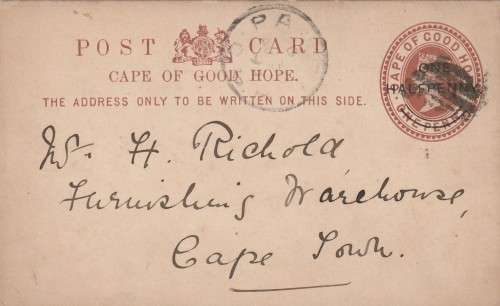 POST CARD
CAPE OF GOOD HOPE.
THE ADDRESS ONLY TO BE WRITTEN ON THIS SIDE.
CAPE OF GOOD HOPE
ONE
HALFPENNY
ONE PENNY
PA
Mr. H. Richold
Furnishing Warehouse,
Cape Town.